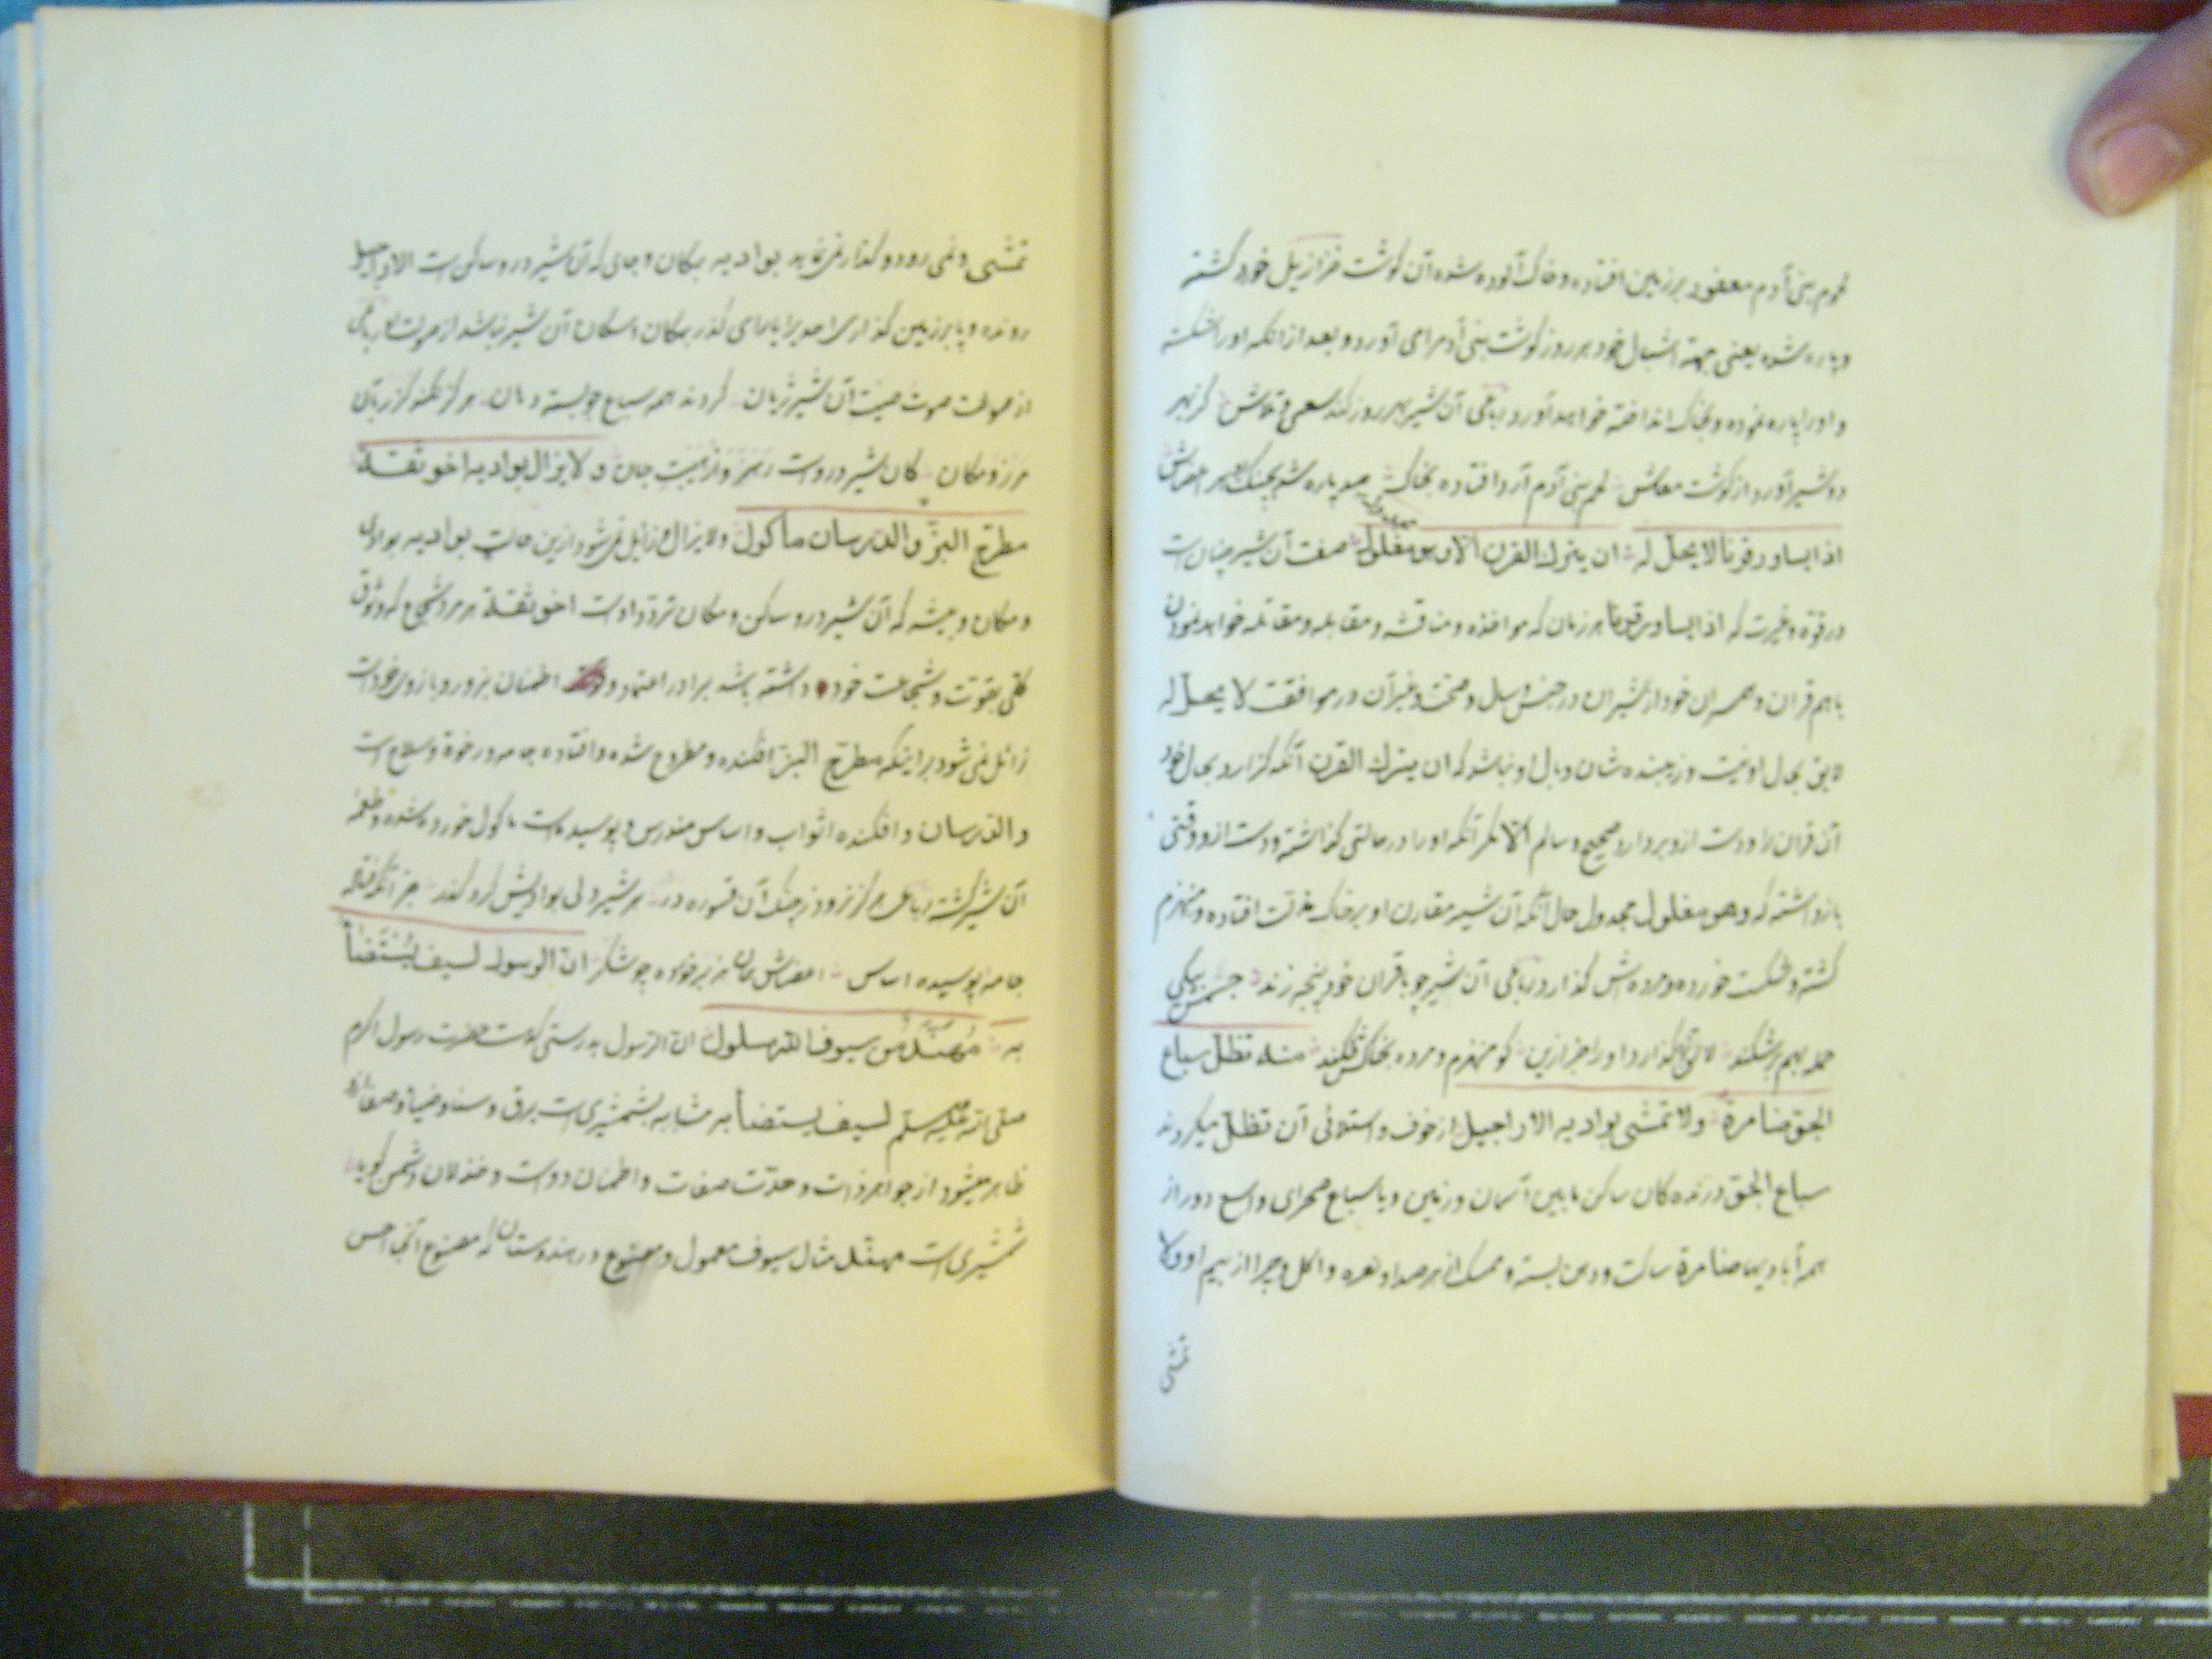 لحوم بنی آدم معفور بر زمین افتاده و خاک آلوده شده آن گوشت خراذیل خورد گشته
و پاره شده یعنی جهة اشبال خود هر روز گوشت بنی آدم را می آورد و بعد از آنکه او را شکسته
و او را پاره نموده و بخاک انداخته خواهد آورد رباعی آن شیر بهر روز کند سعی و تلاش کز بهر
دو شیر آورد از گوشت معاش لحم بنی آدم آرد افتاده بخاک صد پاره شد بچنگ
اذا یساور قرنا لا یحل له ان یترک القرن الا و هو مغلول صفت آن شیر چنان است
در قوة و غیرت که اذا یساور قرنا هر زمان که مواخذه و مناقشه و مقابله و مقاتله خواهد نمودن
با هم قران و همسران خود از شیران در جنس و سل و غیر آن در موافقت لا یحل له
لایق بحال او نیست و زیبنده شان و بال او نباشد که ان یترک القرن آنکه گزارد بحال خود
آن قران را و دست از و بردارد صحیح و سالم الا مگر آنکه او را در حالتی گذاشته و دست از و وقتی
باز داشته که و هو مغلول مجدول حال آنکه آن شیر مقارن او بر خاک مذلت افتاده و منهزم
گشته و شکست خورده و مرده ش گذارد رباعی آن شیر چو با قران خود پنجه زند
حمله بهم بر شکند گذارد او را جز ازین کو منهزم و مرده بخاکش فکند منه تظل سباع
الجو ضامرة ولا تمشی بوادیه الاراجیل از خوف و استلائی آن تظل میکردند
سباع الجو درنده کان ساکن ما بین آسمان و زمین و یا سباع صحرای واسع دور از
همه آبادیها ضامرة ساکت و دهن بسته و ممسک از هر صدا و نعره و اکل و چرا از بیم او ولا
تمشی
تمشی و نمی رود و گذار نمی نماید بوادیه بمکان و جای که آن شیر در و ساکن است الاراجیل
رونده و پا بر زمین گذاری احدی را یارای گذر بمکان اسکان آن شیر نباشد از صولت رباعی
از صولت صوت هیبت آن شیر ژیان کردند همه سباع چو بسته دهان هرگز نکند گذر بآن
مرز و مکان کان شیر در وست ز هیبت جان ولا یزال بوادیه اخو ثقة
مطرح البز والدرسان مأکول ولا یزال و زائل نمی شود ازین حالت بوادیه بوادی
و مکان و بیشه که آن شیر در و ساکن و مکان تردد اوست اخو ثقة هر مرد شجاع که وثوق
کلی بقوت و شجاعت خود داشته باشد برادر اعتماد و اطمنان بزور و بازوی خود است
زائل نمی شود بر اینکه مطرح البز افکنده و مطروح شده و افتاده جامه در خوة و سلاح است
والدرسان و افکنده اثواب و اساس مندرس و پوسیده است مأکول خورده شده و طعمه
آن شیر گشته رباعی هرگز نرود ز چنگ آن قسوره در هر شیر دلی بوادیش کرد گذر جز آنکه فتد
جامه پوسیده اساس اعضاش خورده چو شکر ان الرسول لسیف یستضأ
به مهند من سیوف الله مسلول ان الرسول بدرستی که حضرت رسول اکرم
صلی الله علیه و سلم لسیف یستضأ به مشابه بشمشیری است برق و سنا و ضیا و صفا
ظاهر میشود از جواهر ذات و حدت صفات و اطمنان دوست و خذلان دشمن گویا
شمشیری است مهند مثل سیوف معمول و مصنوع در هندوستان که مصنوع آنجا حسن